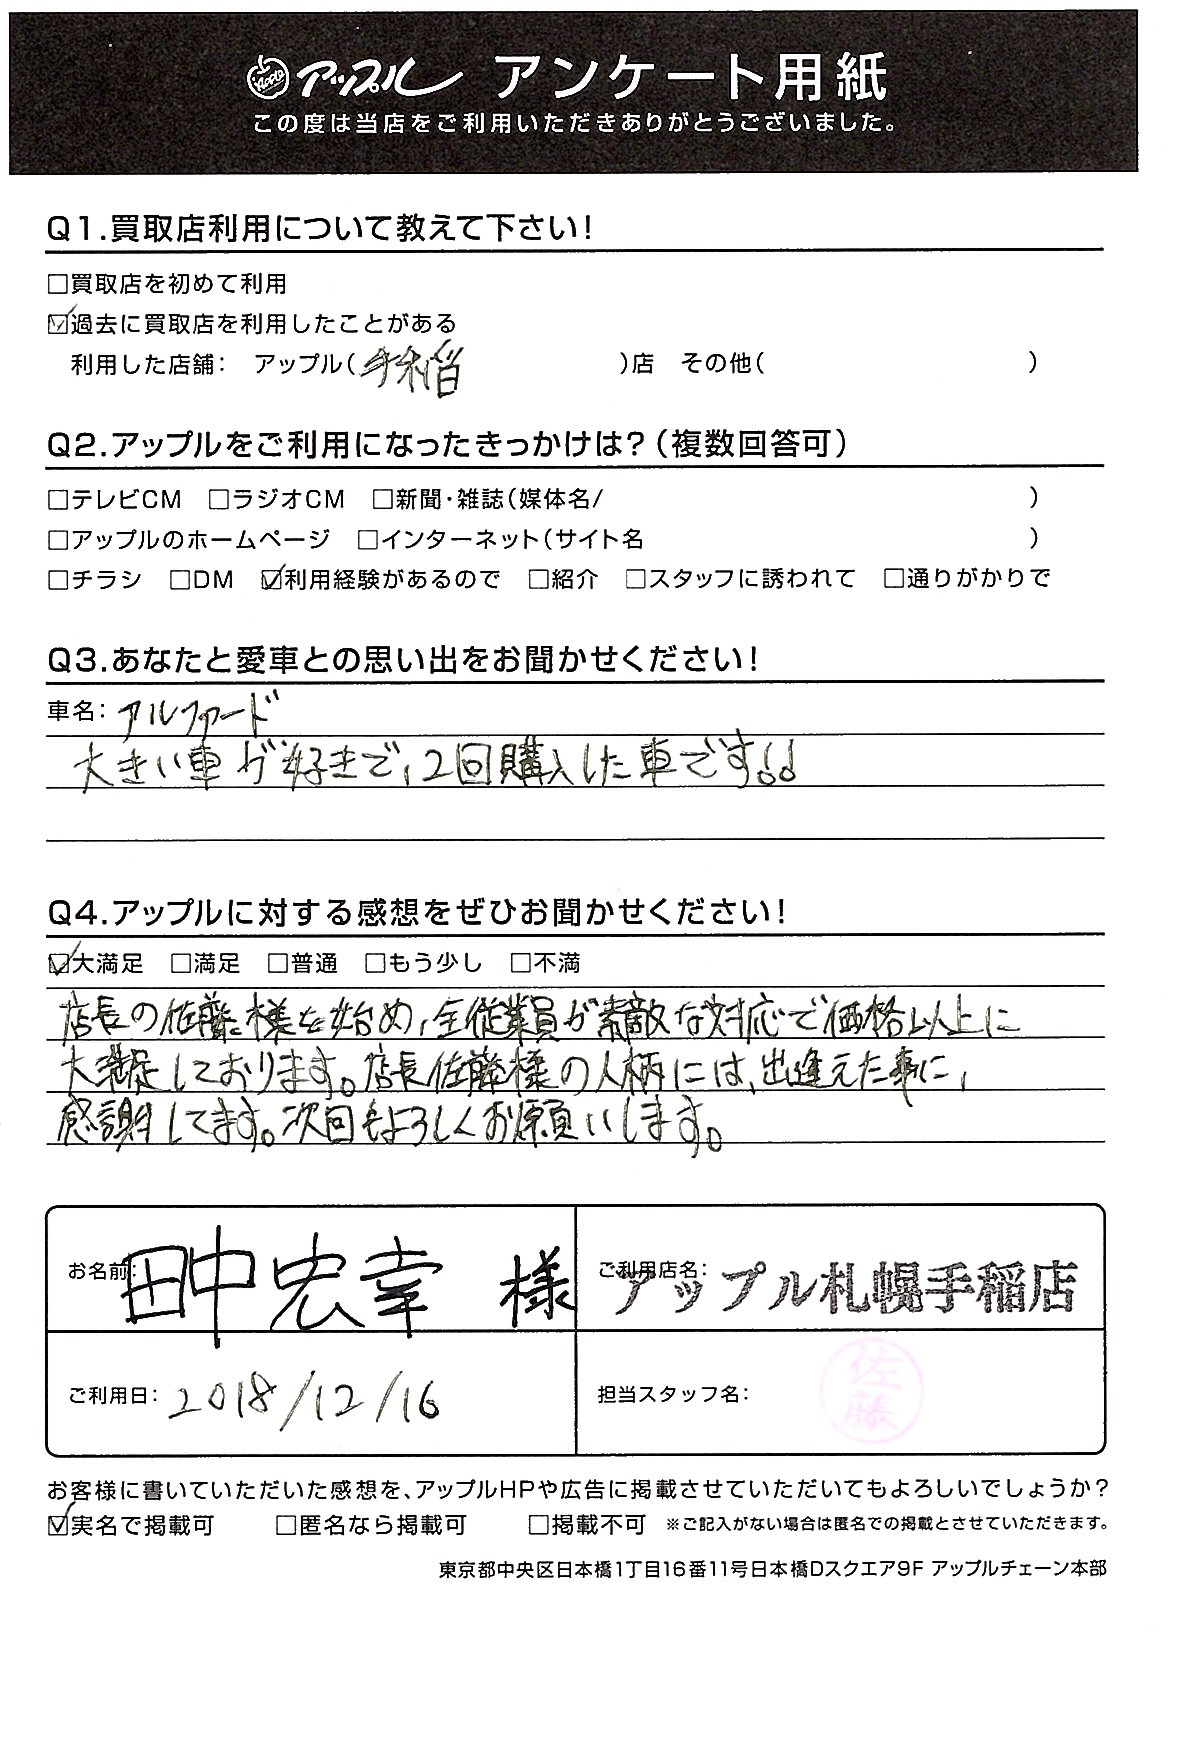 Apple アップル アンケート用紙
この度は当店をご利用いただきありがとうございました。
Q1.買取店利用について教えて下さい!
□買取店を初めて利用
☑過去に買取店を利用したことがある
利用した店舗: アップル(手稲 )店 その他( )
Q2.アップルをご利用になったきっかけは?(複数回答可)
□テレビCM □ラジオCM □新聞・雑誌(媒体名/ )
□アップルのホームページ □インターネット(サイト名 )
□チラシ □DM ☑利用経験があるので □紹介 □スタッフに誘われて □通りがかりで
Q3.あなたと愛車との思い出をお聞かせください!
車名: アルファード
大きい車が好きで、2回購入した車です!!
Q4.アップルに対する感想をぜひお聞かせください!
☑大満足 □満足 □普通 □もう少し □不満
店長の佐藤様を始め、全従業員が素敵な対応で価格以上に
大満足しております。店長佐藤様の人柄には、出逢えた事に、
感謝してます。次回もよろしくお願いします。
お名前: 田中宏幸 様 ご利用店名: アップル札幌手稲店
ご利用日: 2018/12/16 担当スタッフ名: 佐藤
お客様に書いていただいた感想を、アップルHPや広告に掲載させていただいてもよろしいでしょうか?
☑実名で掲載可 □匿名なら掲載可 □掲載不可 ※ご記入がない場合は匿名での掲載とさせていただきます。
東京都中央区日本橋1丁目16番11号日本橋Dスクエア9F アップルチェーン本部